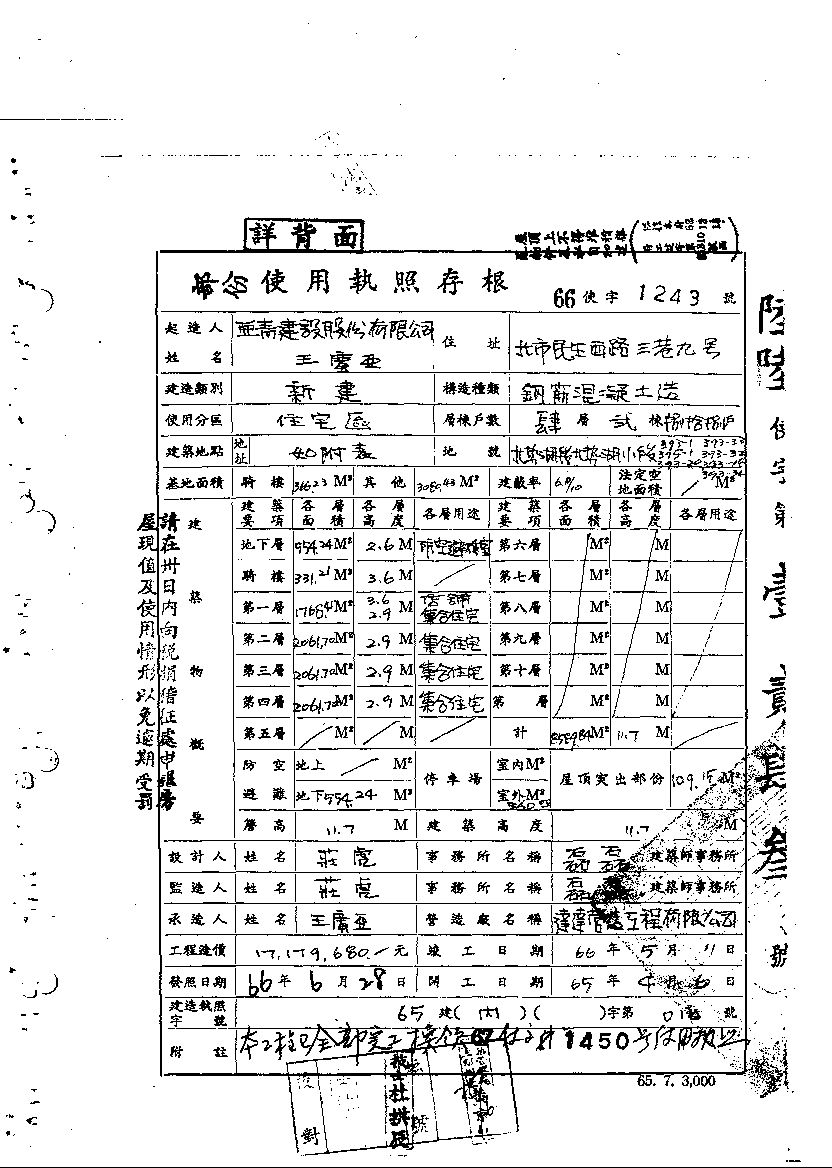 詳背面
部份使用執照存根
66 使字 1243 號
起造人姓名 亞青建設股份有限公司 王慶亞 住址 北市民生西路三巷九号
建造類別 新建 構造種類 鋼筋混凝土造
使用分區 住宅區 層棟戶數 肆層 貳棟
建築地點 地址 如附表 地號
基地面積 騎樓 366.23 M² 其他 3080.43 M² 建蔽率 6/10 法定空地面積 M²
建築物概要
建築要項 各層面積 各層高度 各層用途 建築要項 各層面積 各層高度 各層用途
地下層 554.24 M² 2.6 M 防空避難室 第六層 M² M
騎樓 331.21 M² 3.6 M 第七層 M² M
第一層 1768.41 M² 3.6 2.9 M 店舖 集合住宅 第八層 M² M
第二層 2061.70 M² 2.9 M 集合住宅 第九層 M² M
第三層 2061.70 M² 2.9 M 集合住宅 第十層 M² M
第四層 2061.70 M² 2.9 M 集合住宅 第 層 M² M
第五層 M² M 計 M² 11.7 M
防空避難 地上 M² 地下 554.24 M² 停車場 室內 M² 室外 M² 屋頂突出部份 109.15 M²
簷高 11.7 M 建築高度 11.7 M
設計人 姓名 莊虎 事務所名稱 磊磊 建築師事務所
監造人 姓名 莊虎 事務所名稱 磊磊 建築師事務所
承造人 姓名 王慶亞 營造廠名稱 達達營造工程有限公司
工程造價 17,179,680.- 元 竣工日期 66 年 5 月 11 日
發照日期 66 年 6 月 28 日 開工日期 65 年 4 月 6 日
建造執照字號 65 建( )( )字第 號
附註 本工程已全部完工換領 67 使字第 1450 号使用執照
65. 7. 3,000
校對
請在卅日內向稅捐稽征處申報房
屋現值及使用情形以免逾期受罰
陸陸使字第壹貳肆叁號